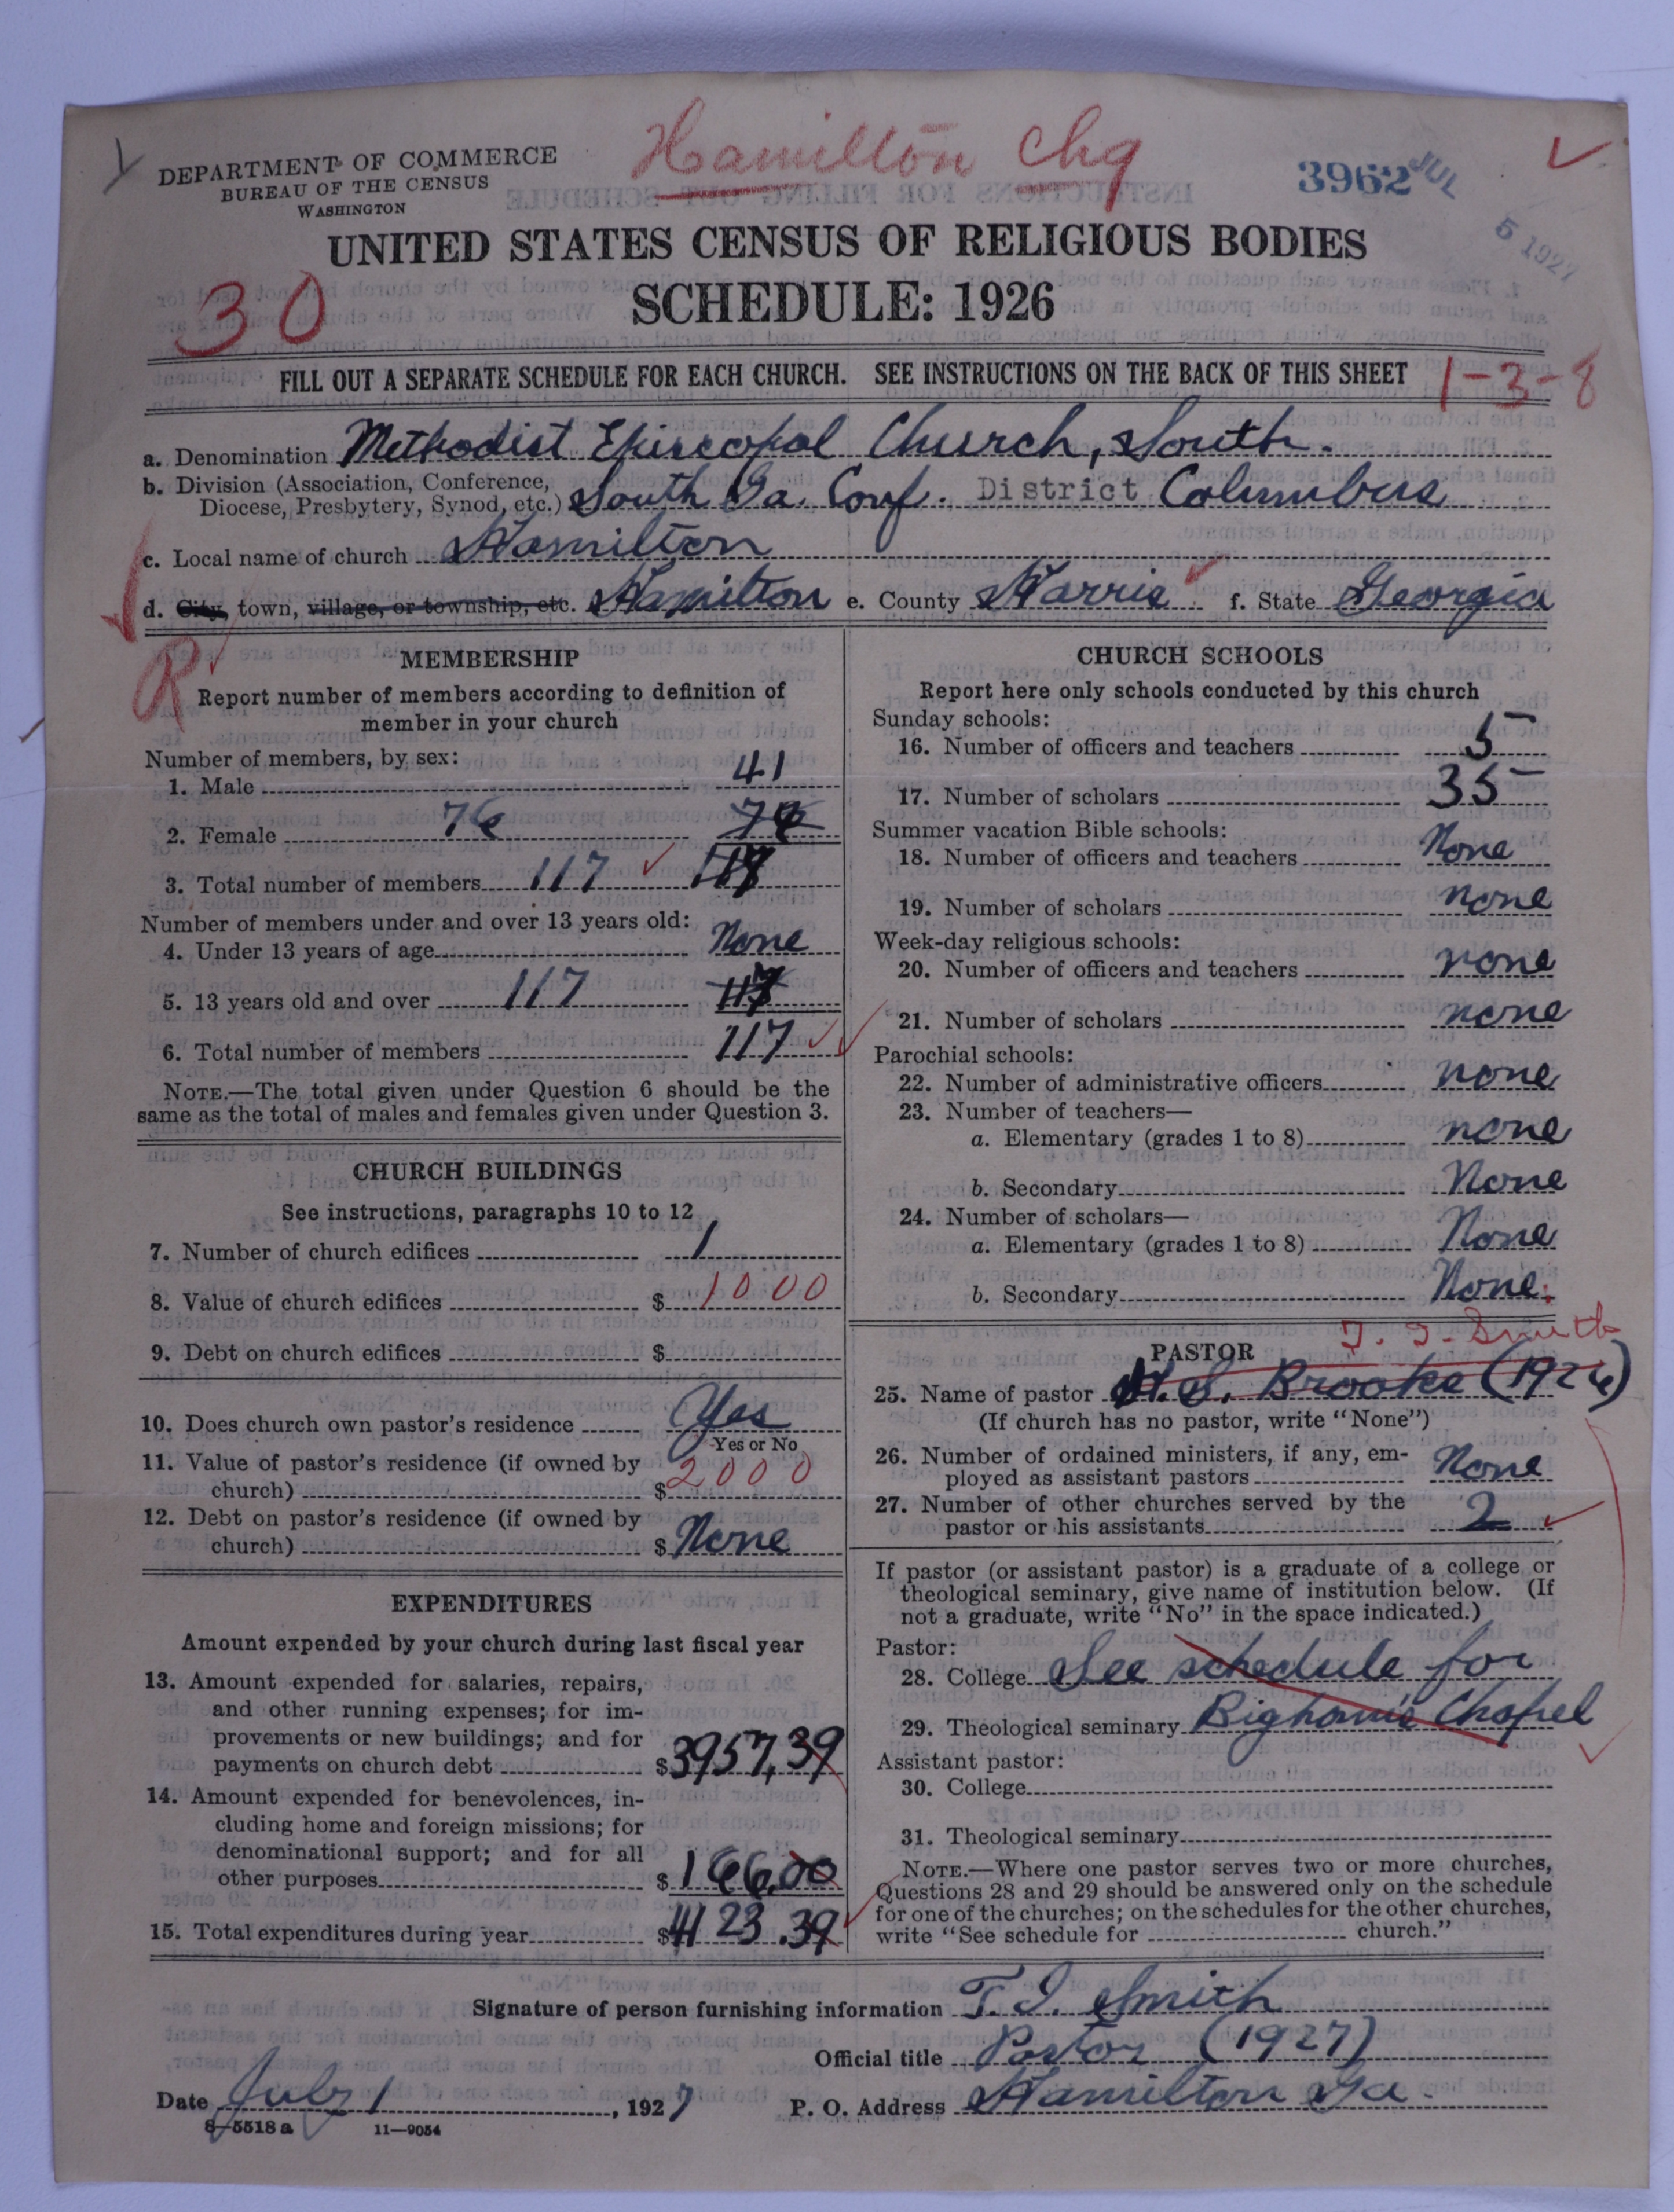 Hamilton Chg
DEPARTMENT OF COMMERCE
BUREAU OF THE CENSUS
WASHINGTON
3962
JUL 5 1927
UNITED STATES CENSUS OF RELIGIOUS BODIES
30
SCHEDULE: 1926
FILL OUT A SEPARATE SCHEDULE FOR EACH CHURCH. SEE INSTRUCTIONS ON THE BACK OF THIS SHEET
1-3-8
a. Denomination Methodist Episcopal Church, South.
b. Division (Association, Conference,
Diocese, Presbytery, Synod, etc.) South Ga. Conf. District Columbus
c. Local name of church Hamilton
d. City, town, village, or township, etc. Hamilton e. County Harris f. State Georgia
R
MEMBERSHIP
Report number of members according to definition of
member in your church
Number of members, by sex:
1. Male 41
2. Female 76
3. Total number of members 117
Number of members under and over 13 years old:
4. Under 13 years of age None
5. 13 years old and over 117
6. Total number of members 117
NOTE.—The total given under Question 6 should be the
same as the total of males and females given under Question 3.
CHURCH BUILDINGS
See instructions, paragraphs 10 to 12
7. Number of church edifices 1
8. Value of church edifices $ 1000
9. Debt on church edifices $
10. Does church own pastor's residence Yes
Yes or No
11. Value of pastor's residence (if owned by
church) $ 2000
12. Debt on pastor's residence (if owned by
church) $ None
EXPENDITURES
Amount expended by your church during last fiscal year
13. Amount expended for salaries, repairs,
and other running expenses; for im-
provements or new buildings; and for
payments on church debt $ 3957,39
14. Amount expended for benevolences, in-
cluding home and foreign missions; for
denominational support; and for all
other purposes $ 166.00
15. Total expenditures during year $ 4123.39
CHURCH SCHOOLS
Report here only schools conducted by this church
Sunday schools:
16. Number of officers and teachers 5
17. Number of scholars 35
Summer vacation Bible schools:
18. Number of officers and teachers None
19. Number of scholars none
Week-day religious schools:
20. Number of officers and teachers none
21. Number of scholars none
Parochial schools:
22. Number of administrative officers none
23. Number of teachers—
a. Elementary (grades 1 to 8) none
b. Secondary None
24. Number of scholars—
a. Elementary (grades 1 to 8) None
b. Secondary None.
T. I. Smith
PASTOR
25. Name of pastor S. Brooke (1926)
(If church has no pastor, write "None")
26. Number of ordained ministers, if any, em-
ployed as assistant pastors None
27. Number of other churches served by the
pastor or his assistants 2
If pastor (or assistant pastor) is a graduate of a college or
theological seminary, give name of institution below. (If
not a graduate, write "No" in the space indicated.)
Pastor:
28. College See schedule for
29. Theological seminary Bigham's Chapel
Assistant pastor:
30. College
31. Theological seminary
NOTE.—Where one pastor serves two or more churches,
Questions 28 and 29 should be answered only on the schedule
for one of the churches; on the schedules for the other churches,
write "See schedule for church."
Signature of person furnishing information T. I. Smith
Official title Pastor (1927)
Date July 1, 1927 P. O. Address Hamilton Ga.
8—5518 a 11—9054